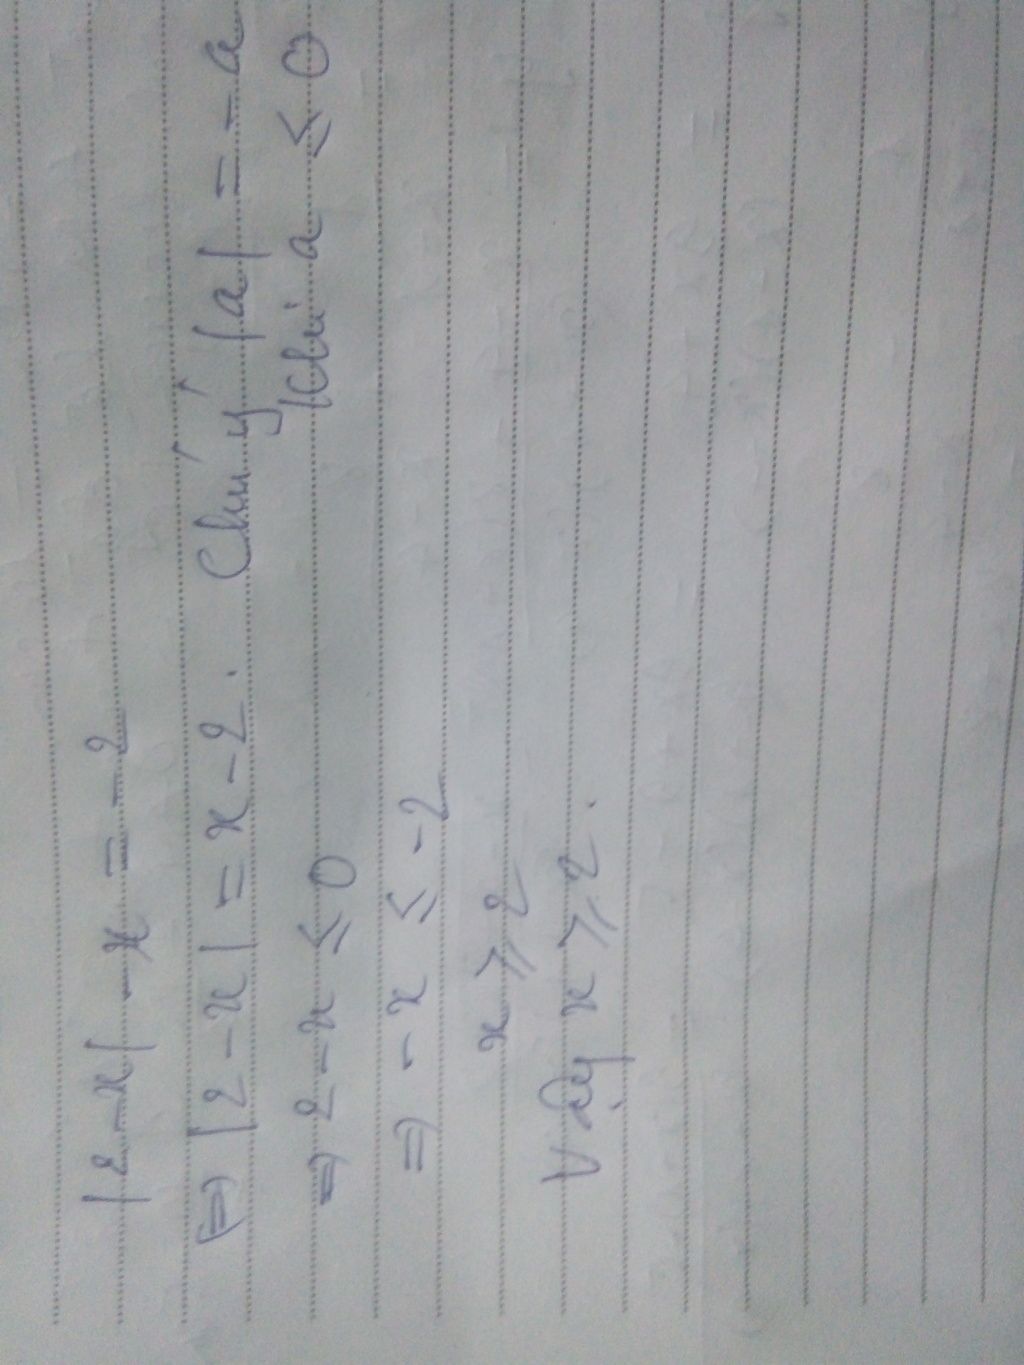 |2-x| - x = -2
(=) |2-x| = x-2. Chú ý |a| = -a
khi a ≤ 0
=) 2-x ≤ 0
=) -x ≤ -2
x ≥ 2
Vậy x ≥ 2.